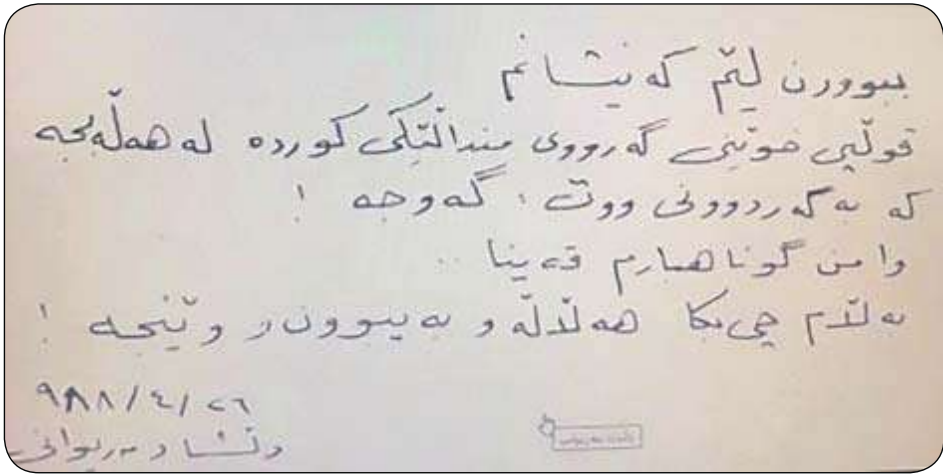 ببوورن لێم کە نیشانم
قوڵپی خوێنی گەرووی منداڵێکی کوردە لە هەڵەبجە
کە بە گەردوونی ووت: گەوجە !
وا من گوناهبارم قەینا ..
بەڵام چی بکا هەڵاڵە و بەیبوون و وێنجە !
٩٨٨/٤/٢٦
دڵشاد مەریوانی